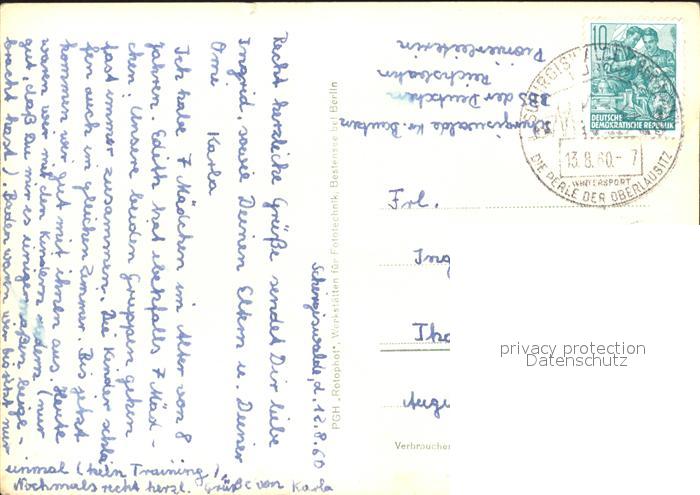 Schirgiswalde, d. 12.8.60
Recht herzliche Grüße sendet Dir liebe
Ingrid, sowie Deinen Eltern u. Deiner
Omi Karla
Ich habe 7 Mädchen im Alter von 8
Jahren. Edith hat ebenfalls 7 Mäd-
chen. Unsere beiden Gruppen gehen
fast immer zusammen. Die Kinder schla-
fen auch im gleichen Zimmer. Bis jetzt
kommen wir gut mit ihnen aus. Heute
waren wir mit den Kindern rodeln (nur
gut, daß Du mir es einigermaßen beige-
bracht hast). Baden waren wir bis jetzt nur
einmal (kein Training).
Nochmals recht herzl. Grüße von Karla
PGH „Rotophot", Werkstätten für Fototechnik, Bestensee bei Berlin
Pionierleiterin
Reichsbahn
BBS der Deutschen
Schirgiswalde Kr. Bautzen
10
DEUTSCHE
DEMOKRATISCHE REPUBLIK
13.8.60.- 7
WINTERSPORT
DIE PERLE DER OBERLAUSITZ
Frl.
Ing
Augu
Verbraucher
privacy protection
Datenschutz